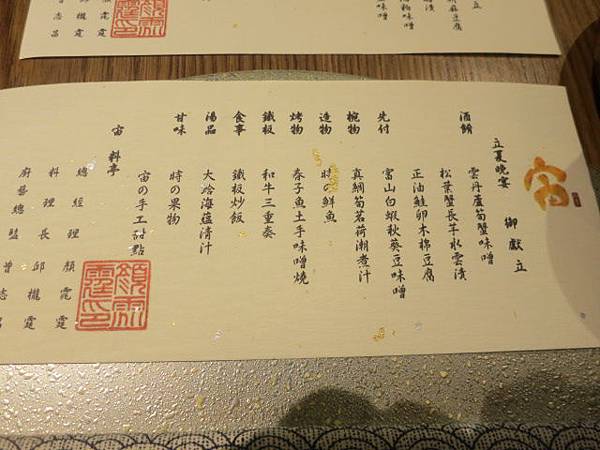 宙
御獻立
立夏晚宴
酒餚
雲丹蘆筍蟹味噌
松葉蟹長芋水雲漬
正油鮭卵木棉豆腐
先付 富山白蝦秋葵豆味噌
椀物 真鯛筍茗荷潮煮汁
造物 時の鮮魚
烤物 春子魚土手味噌燒
鐵板 和牛三重奏
食事 鐵板炒飯
湯品 大蛤海蘊清汁
甘味 時の果物
宙の手工甜點
宙 料亭
總經理 顏霓霆
料理長 邱櫳霆
廚藝總監 曾志
立
漬
麻豆腐
味噌
櫳霆
志